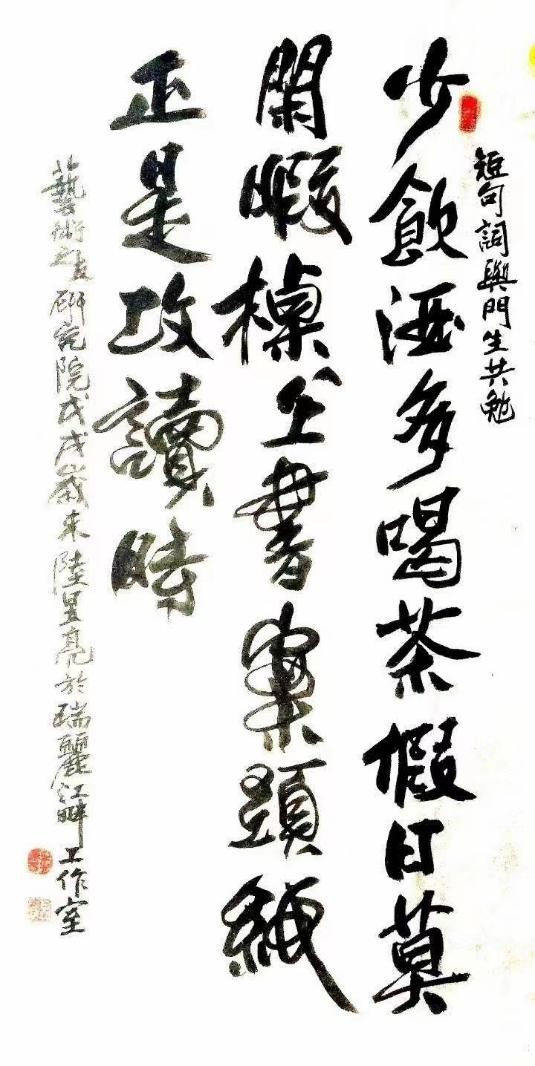 短句詞與門生共勉
少飲酒多喝茶假日莫
閑暇桌上書案頭紙
正是攻讀時
藝術之友研究院戊戌歲末陸昱亮於瑞麗江畔工作室